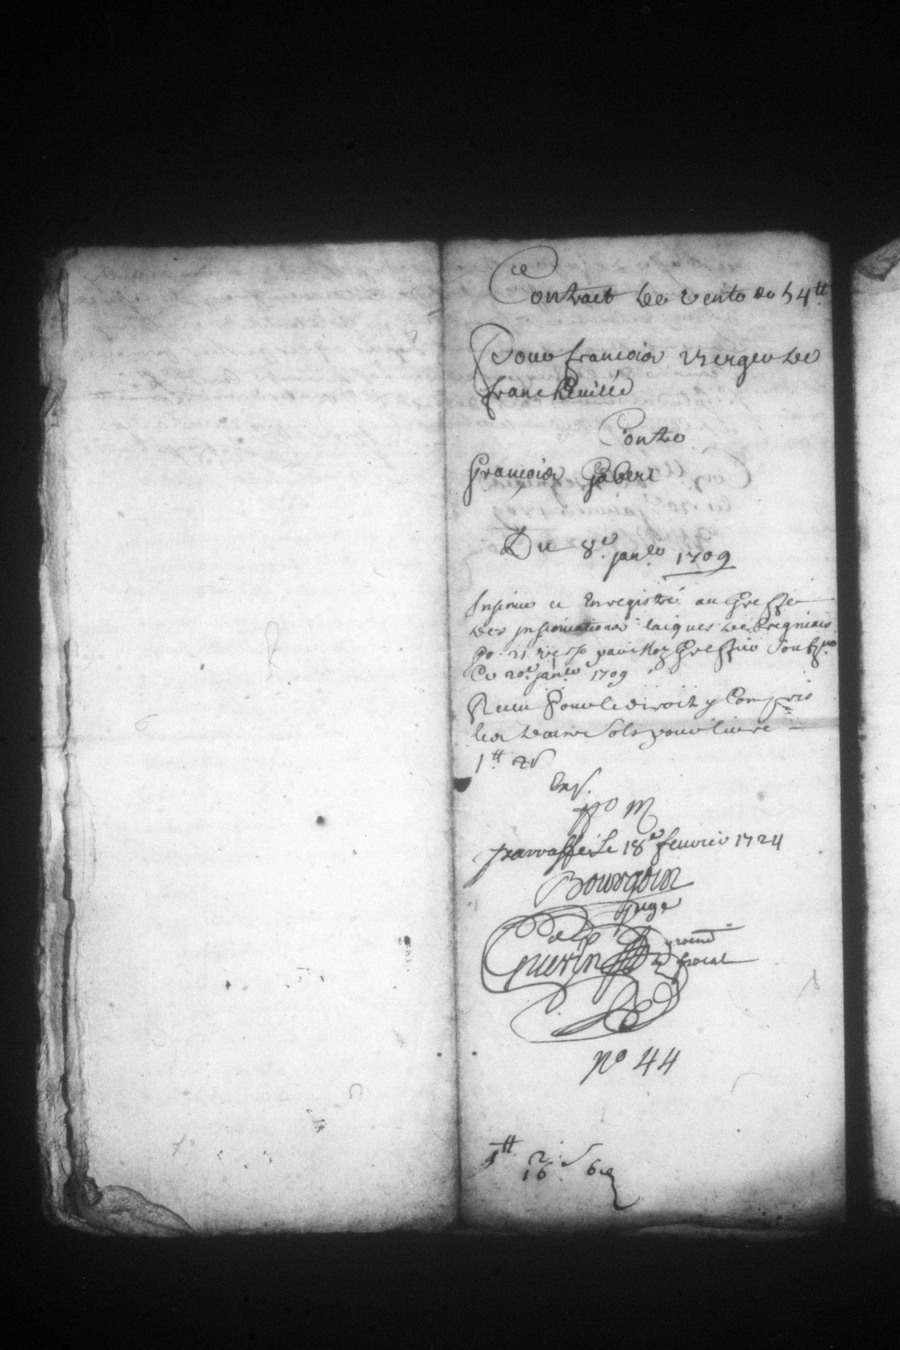 ce
Contract de vente de 54tt
Pour françois Verger de
francheville
Contre
françois Gabert
Du 8e janer 1709
Insinué et Enregistré au Greffe
des insinuations laiques de
fo 21 verso par Greffier Soubzné
Ce 20e janer 1709
Receu Pour le droit y Compris
les deux Sols pour livre
1tt
Ens.
parraffé Le 18e feuvrier 1724
Bourgoin
juge
Guerin
fiscal
No 44
1tt